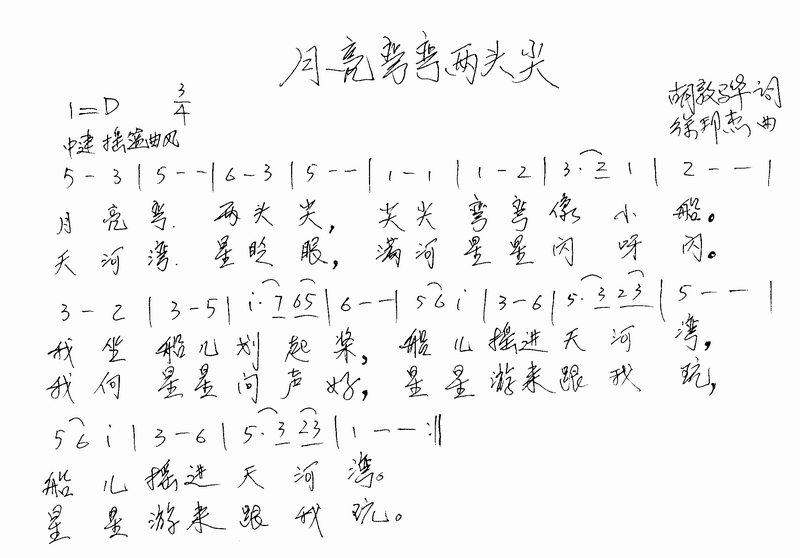 月亮弯弯两头尖
1=D 3/4
胡敦骅词
中速 摇篮曲风
徐邦杰曲
5 - 3 | 5 - - | 6 - 3 | 5 - - | 1 - 1 | 1 - 2 | 3· 2 1 | 2 - - |
月亮弯. 两头尖, 尖尖弯弯像小船。
天河湾. 星眨眼, 满河星星闪呀闪。
3 - 2 | 3 - 5 | i· 7 65 | 6 - - | 5 6 i | 3 - 6 | 5· 3 23 | 5 - - |
我坐船儿划起桨, 船儿摇进天河湾,
我向星星问声好, 星星游来跟我玩,
5 6 i | 3 - 6 | 5· 3 23 | 1 - - :‖
船儿摇进天河湾。
星星游来跟我玩。